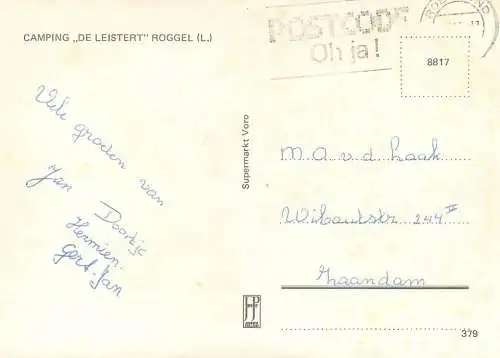 CAMPING „DE LEISTERT" ROGGEL (L.)
POSTCODE
Oh ja!
8817
Vele groeten van
Jan
Doortje
Hermien-
Gert-Jan
Supermarkt Voro
M A v.d. Laak
Wibautstr 244 II
Zaandam
379